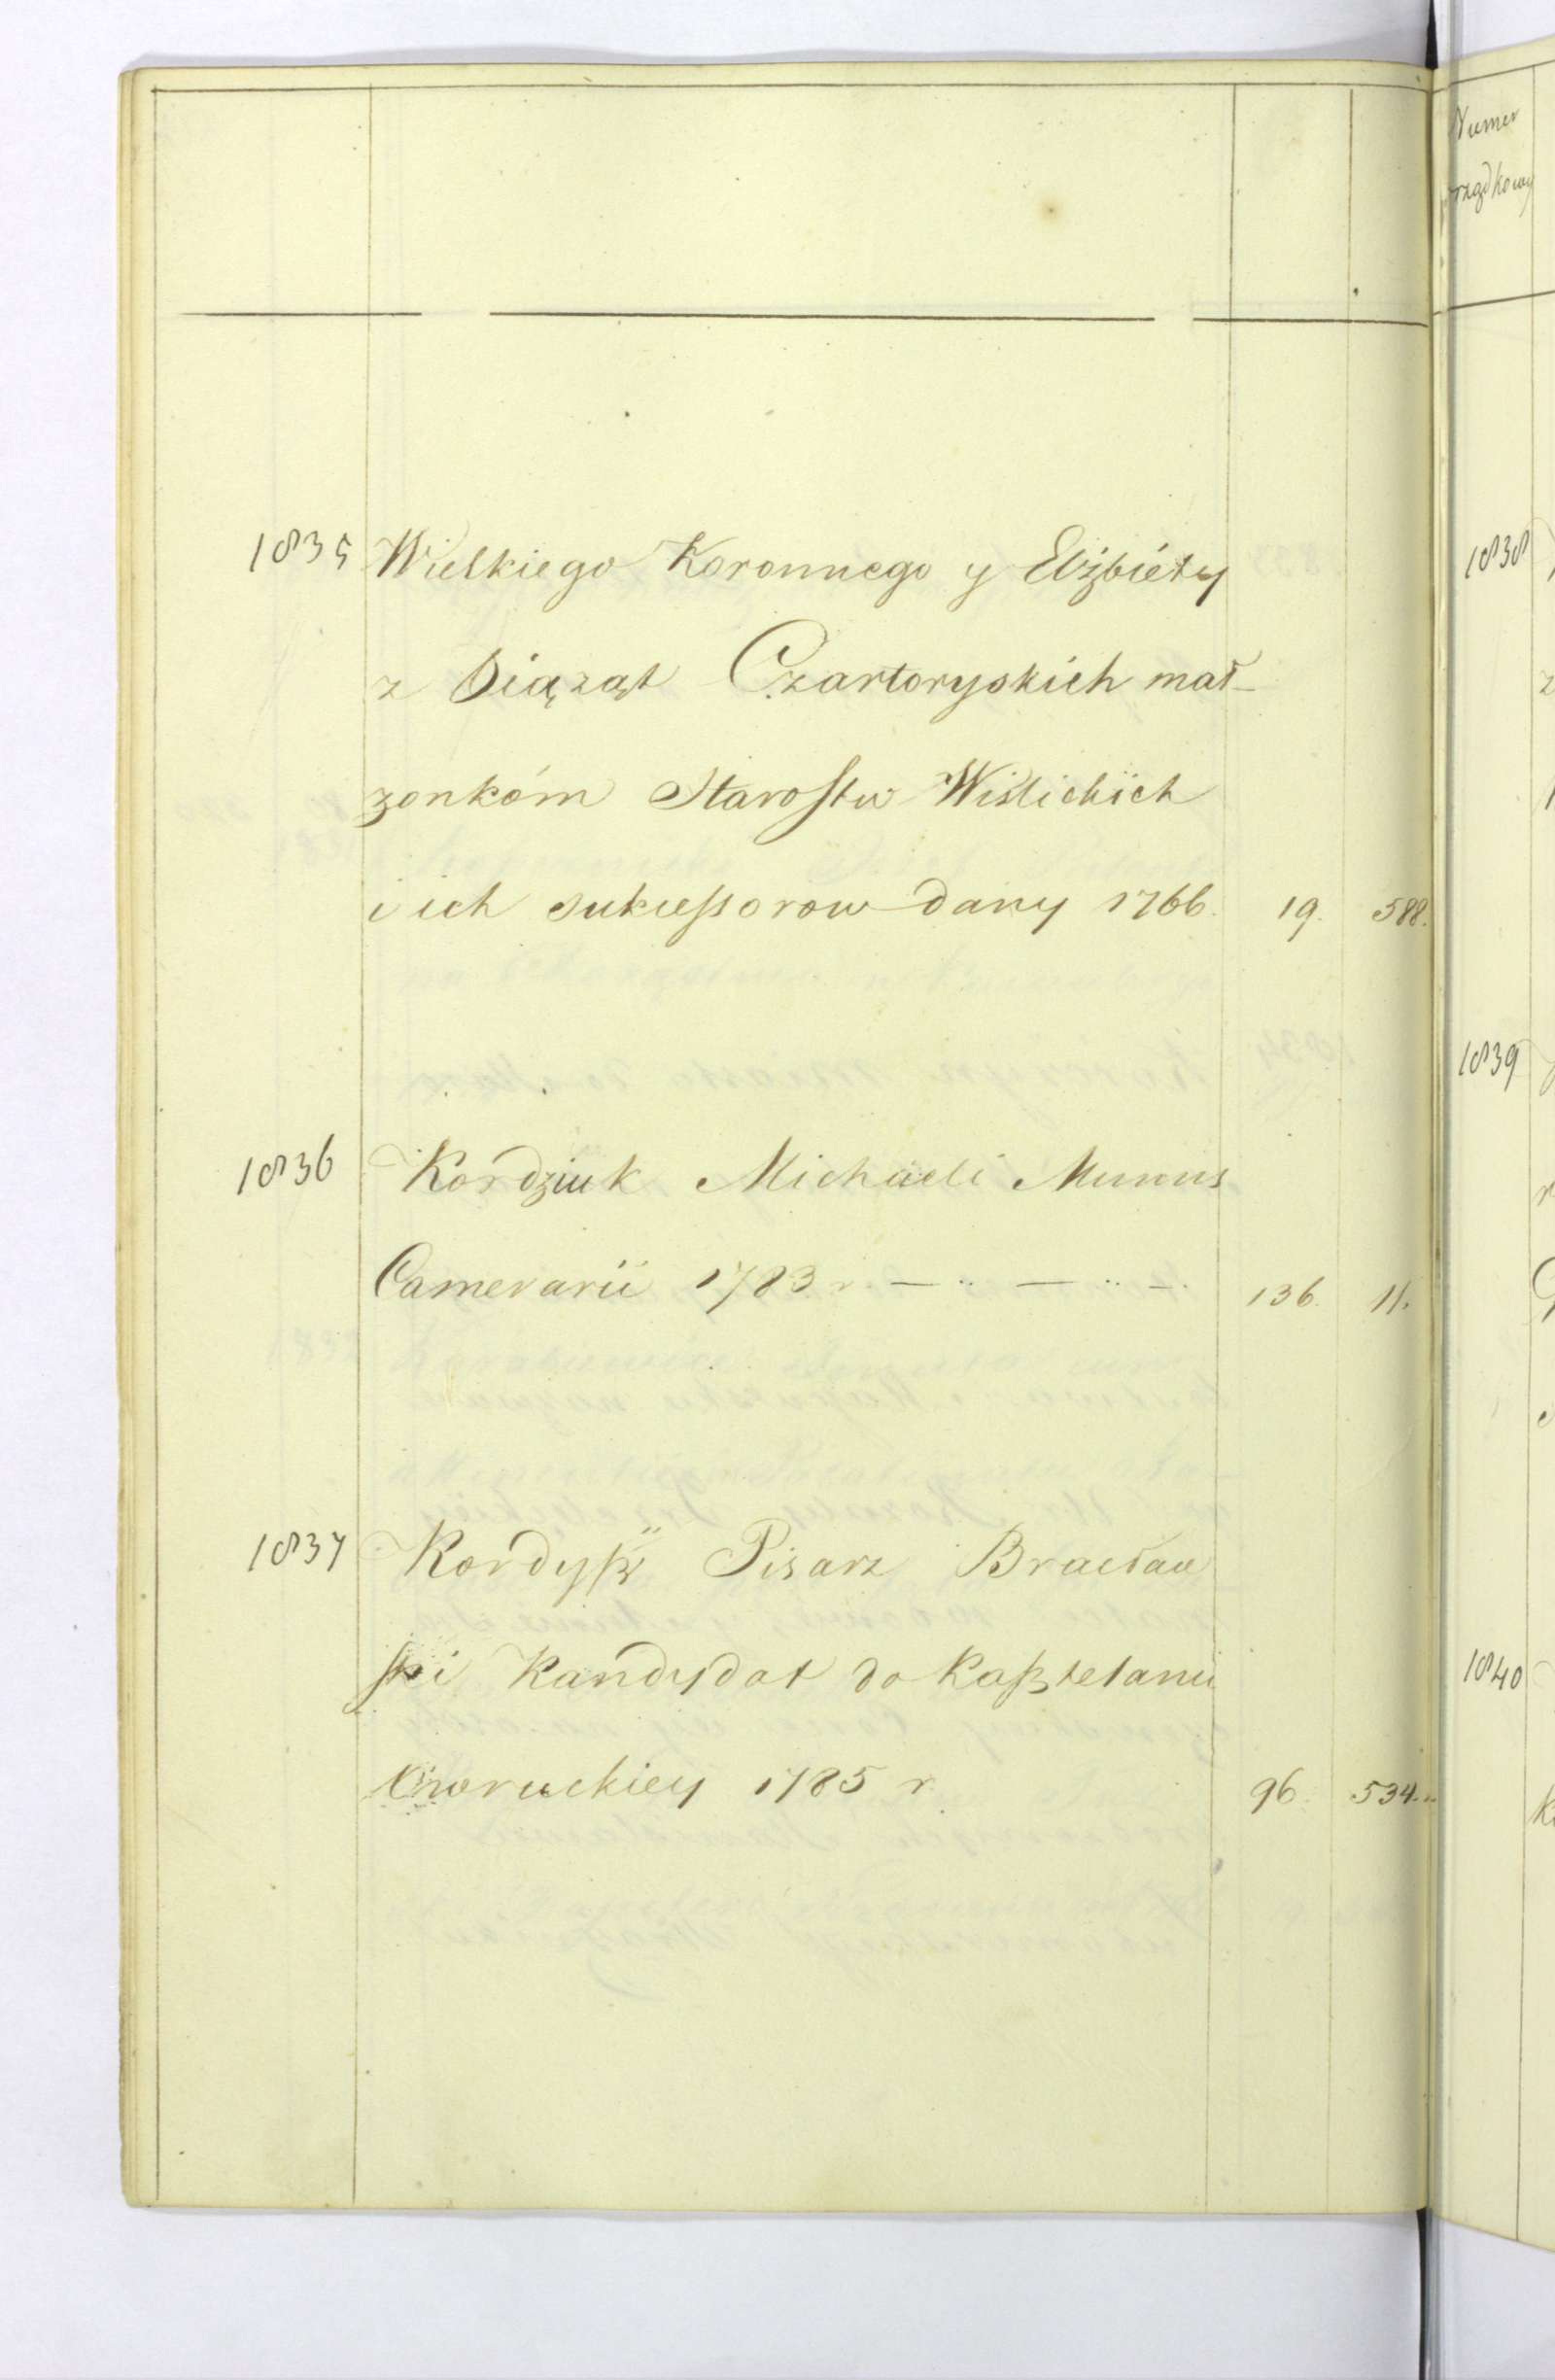 1835 Wielkiego Koronnego y Elżbiéty
z Xiążąt Czartoryskich mał-
żonkóm Starostw Wiślickich
i ich sukcessorow dany 1766. 19. 588.
1836 Kordziuk Michaeli Munus
Camerarii 1783 r. — .. — .. —. 136. 11.
1837 Kordysz Pisarz Bracław
ski Kandydat do Kasztelanii
Owruckiey 1785 r. 96. 534.
Numer
rządkowy
1838
1839
1840